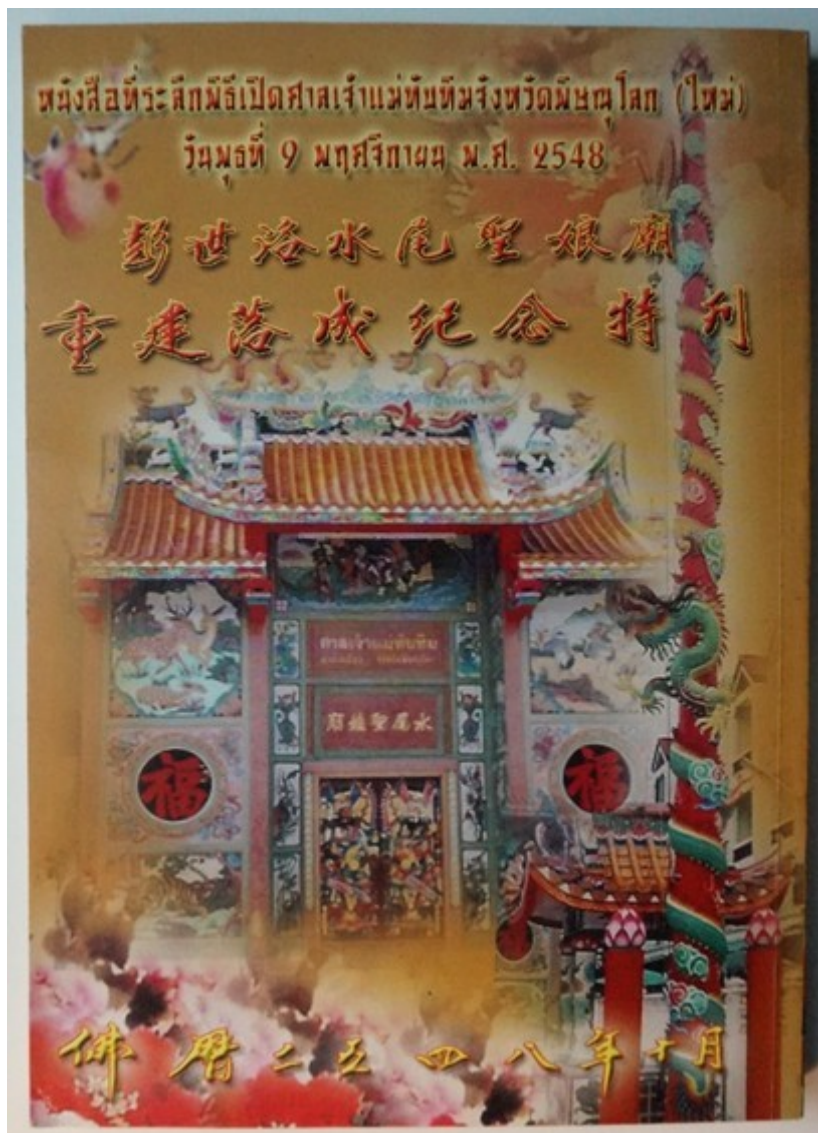 หนังสือที่ระลึกพิธีเปิดศาลเจ้าแม่ทับทิมจังหวัดพิษณุโลก (ใหม่)
วันพุธที่ 9 พฤศจิกายน พ.ศ. 2548
彭世洛水尾聖娘廟
重建落成紀念特刊
ศาลเจ้าแม่ทับทิม
水尾聖娘廟
福
福
佛曆二五四八年十月